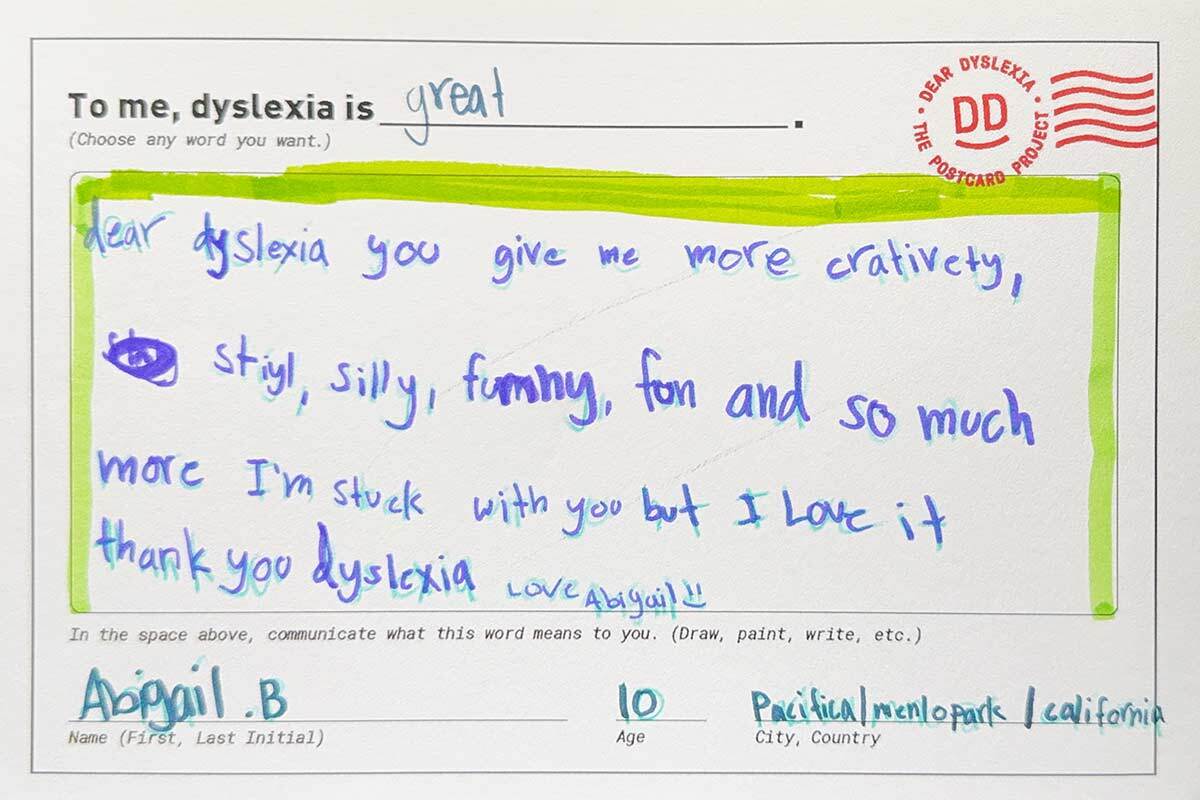 To me, dyslexia is great.
(Choose any word you want.)
• DEAR DYSLEXIA • THE POSTCARD PROJECT
DD
dear dyslexia you give me more crativety,
stiyl, silly, fumny, fon and so much
more I'm stuck with you but I Love it
thank you dyslexia Love Abigail
In the space above, communicate what this word means to you. (Draw, paint, write, etc.)
Abigail .B 10 Pacifica/menlopark/california
Name (First, Last Initial) Age City, Country